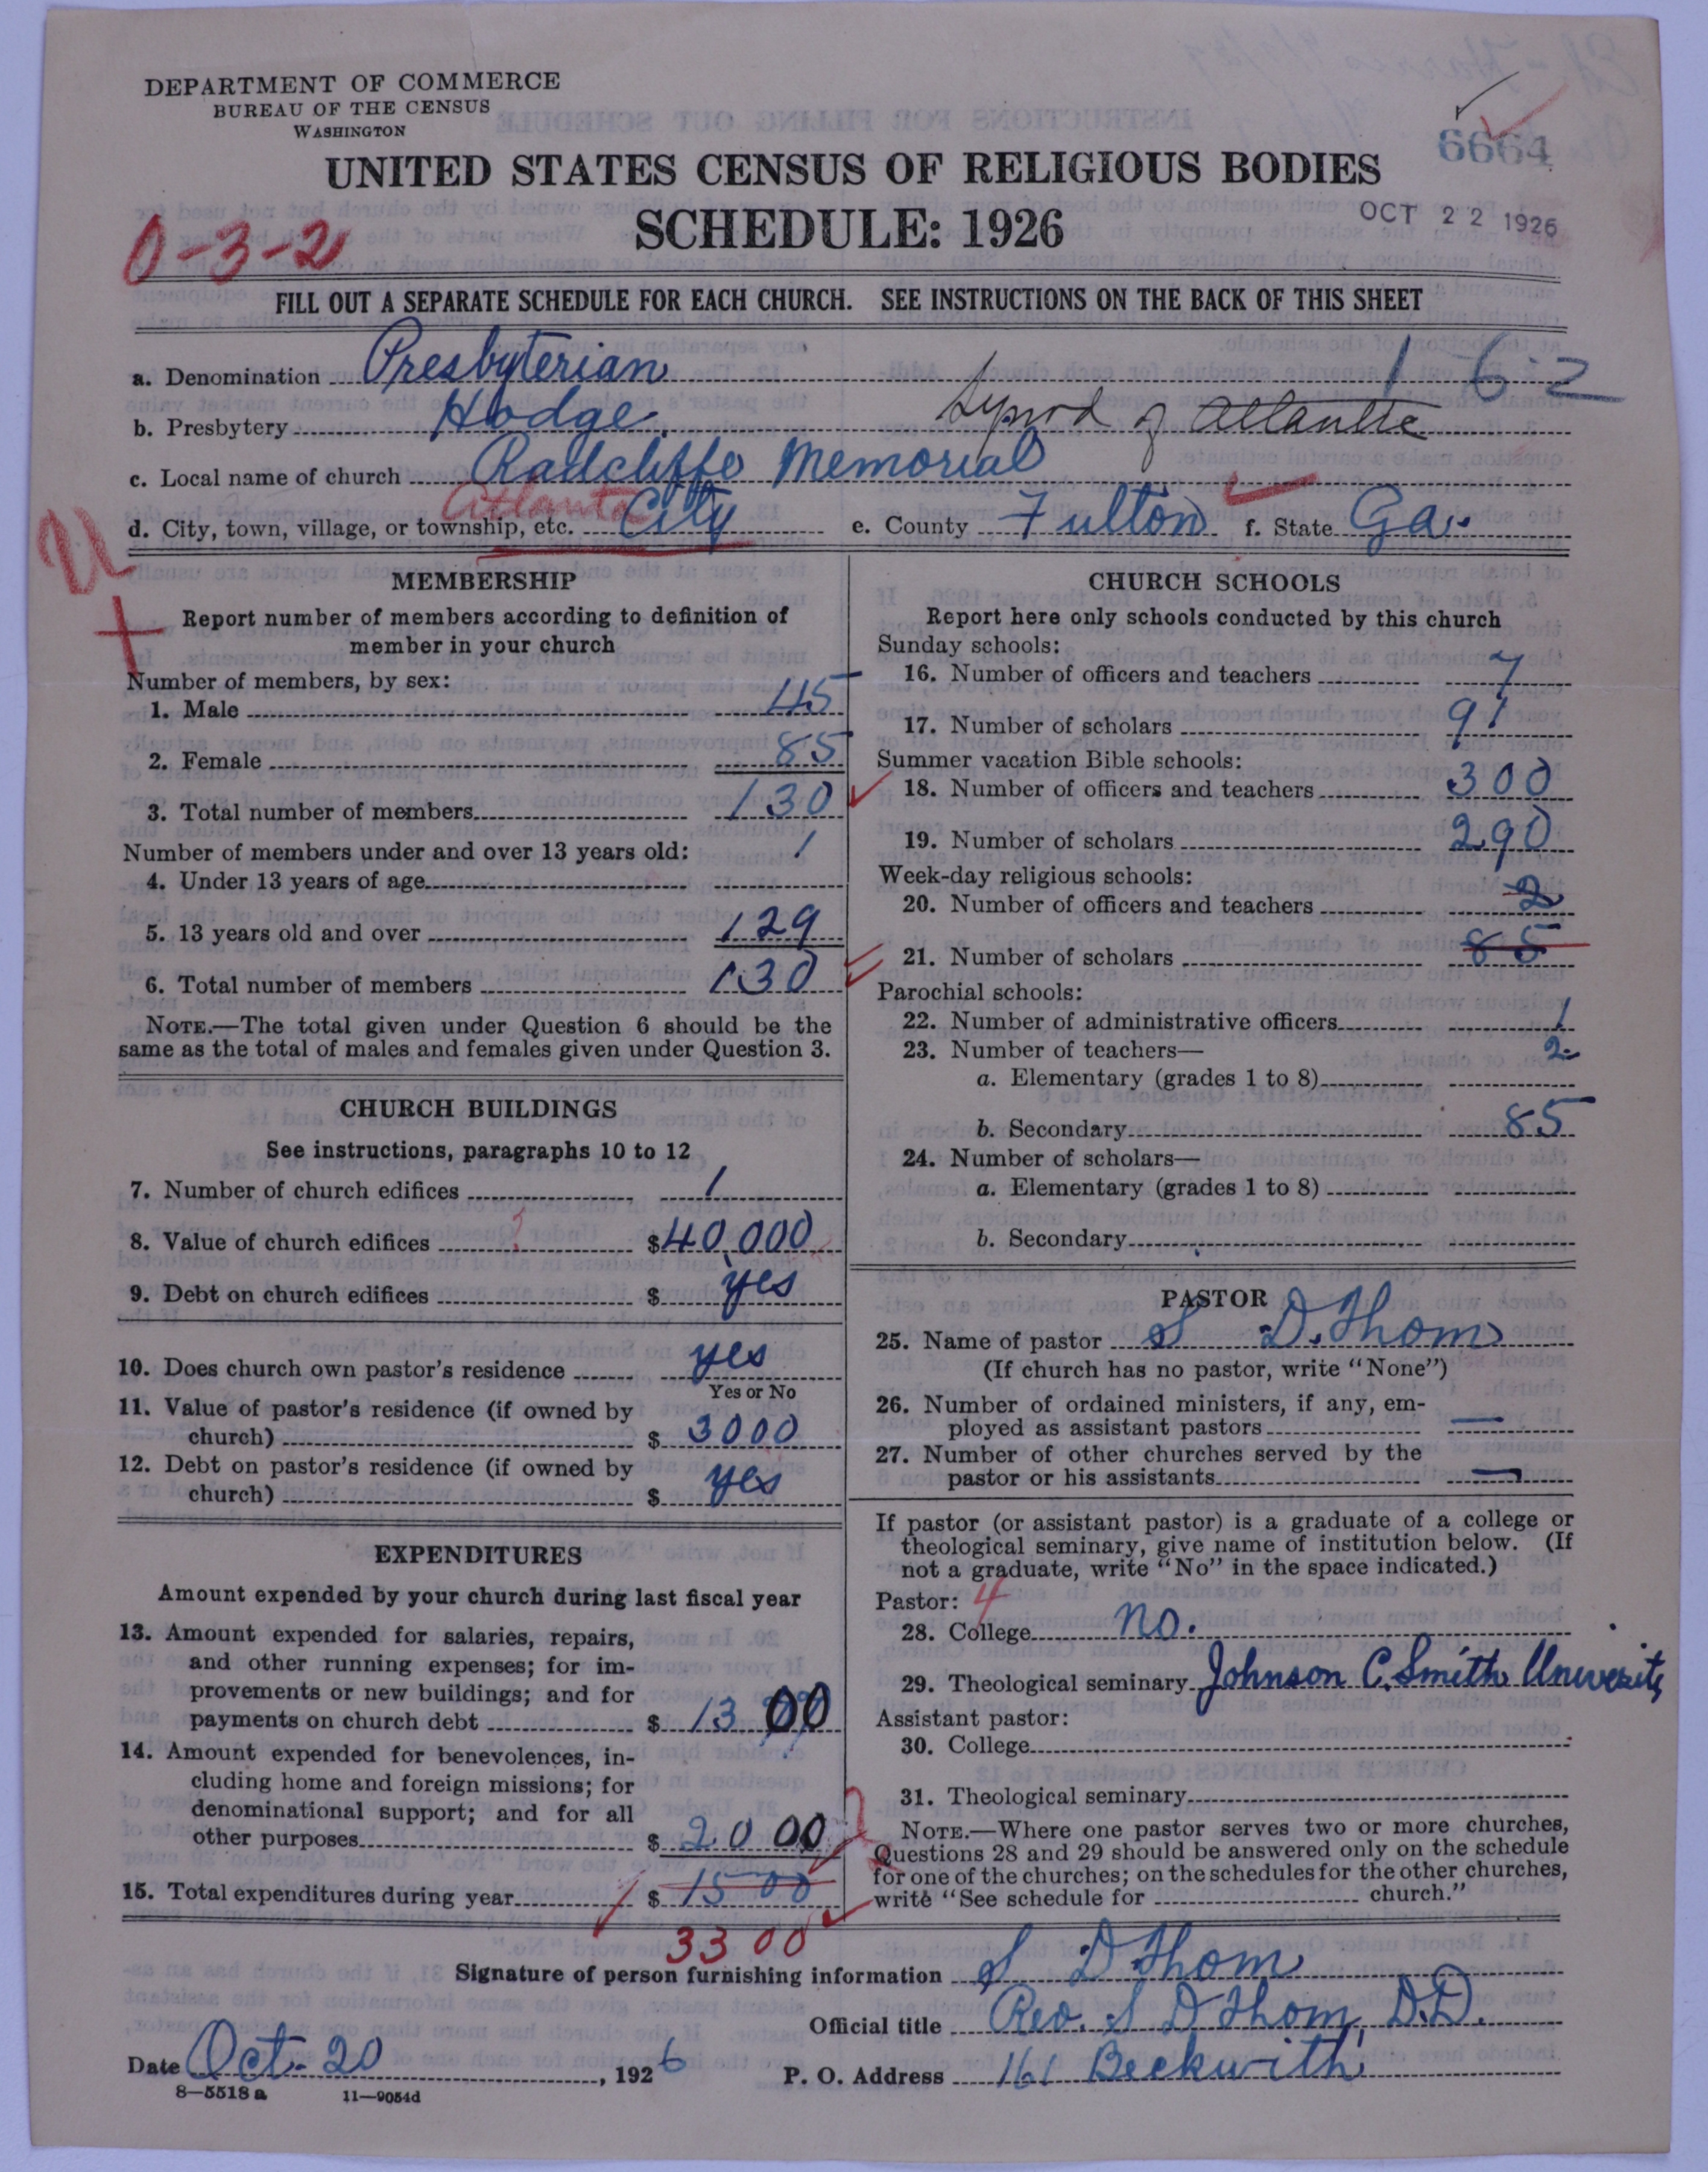 DEPARTMENT OF COMMERCE
BUREAU OF THE CENSUS
WASHINGTON
6664
UNITED STATES CENSUS OF RELIGIOUS BODIES
SCHEDULE: 1926
OCT 22 1926
0-3-2
FILL OUT A SEPARATE SCHEDULE FOR EACH CHURCH. SEE INSTRUCTIONS ON THE BACK OF THIS SHEET
a. Denomination Presbyterian 1 6-2
b. Presbytery Hodge Synod of Atlantic
c. Local name of church Radcliffe Memorial
d. City, town, village, or township, etc. Atlanta City e. County Fulton f. State Ga.
MEMBERSHIP
Report number of members according to definition of
member in your church
Number of members, by sex:
1. Male 45
2. Female 85
3. Total number of members 130
Number of members under and over 13 years old:
4. Under 13 years of age 1
5. 13 years old and over 129
6. Total number of members 130
NOTE.—The total given under Question 6 should be the
same as the total of males and females given under Question 3.
CHURCH BUILDINGS
See instructions, paragraphs 10 to 12
7. Number of church edifices 1
8. Value of church edifices $40,000
9. Debt on church edifices $ yes
10. Does church own pastor's residence yes
Yes or No
11. Value of pastor's residence (if owned by
church) $ 3000
12. Debt on pastor's residence (if owned by
church) $ yes
EXPENDITURES
Amount expended by your church during last fiscal year
13. Amount expended for salaries, repairs,
and other running expenses; for im-
provements or new buildings; and for
payments on church debt $ 13 00
14. Amount expended for benevolences, in-
cluding home and foreign missions; for
denominational support; and for all
other purposes $ 20 00
15. Total expenditures during year $ 15 00
33 00
CHURCH SCHOOLS
Report here only schools conducted by this church
Sunday schools:
16. Number of officers and teachers 7
17. Number of scholars 91
Summer vacation Bible schools:
18. Number of officers and teachers 300
19. Number of scholars 290
Week-day religious schools:
20. Number of officers and teachers 2
21. Number of scholars 85
Parochial schools:
22. Number of administrative officers 1
23. Number of teachers— 2
a. Elementary (grades 1 to 8)
b. Secondary 85
24. Number of scholars—
a. Elementary (grades 1 to 8)
b. Secondary
PASTOR
25. Name of pastor S D. Thom
(If church has no pastor, write "None")
26. Number of ordained ministers, if any, em-
ployed as assistant pastors —
27. Number of other churches served by the
pastor or his assistants —
If pastor (or assistant pastor) is a graduate of a college or
theological seminary, give name of institution below. (If
not a graduate, write "No" in the space indicated.)
Pastor: 4
28. College no.
29. Theological seminary Johnson C. Smith University
Assistant pastor:
30. College
31. Theological seminary
NOTE.—Where one pastor serves two or more churches,
Questions 28 and 29 should be answered only on the schedule
for one of the churches; on the schedules for the other churches,
write "See schedule for church."
Signature of person furnishing information S D Thom
Official title Rev. S D Thom, D.D.
Date Oct. 20, 1926 P. O. Address 161 Beckwith
8—5518 a 11—9054d